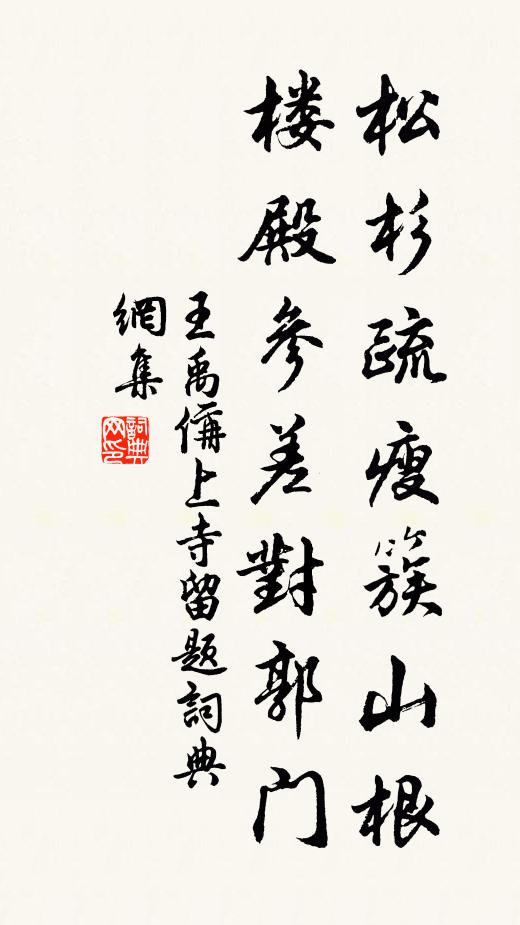 松杉疏瘦簇山根
楼殿參差對郭门
王禹偁上寺留题詞典
網集
詞典网印